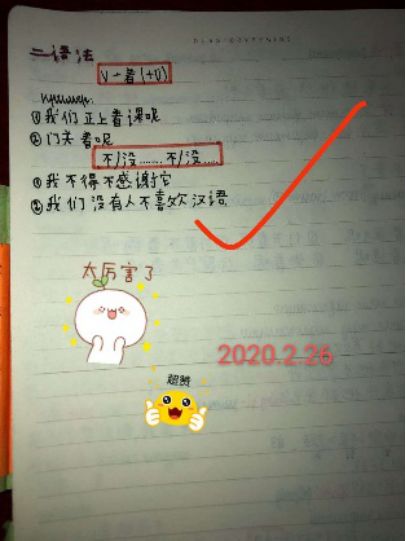 二语法
V+着(+O)
①我们正上着课呢
②门关着呢
不/没……不/没……
①我不得不感谢它
②我们没有人不喜欢汉语
太厉害了
2020.2.26
超赞